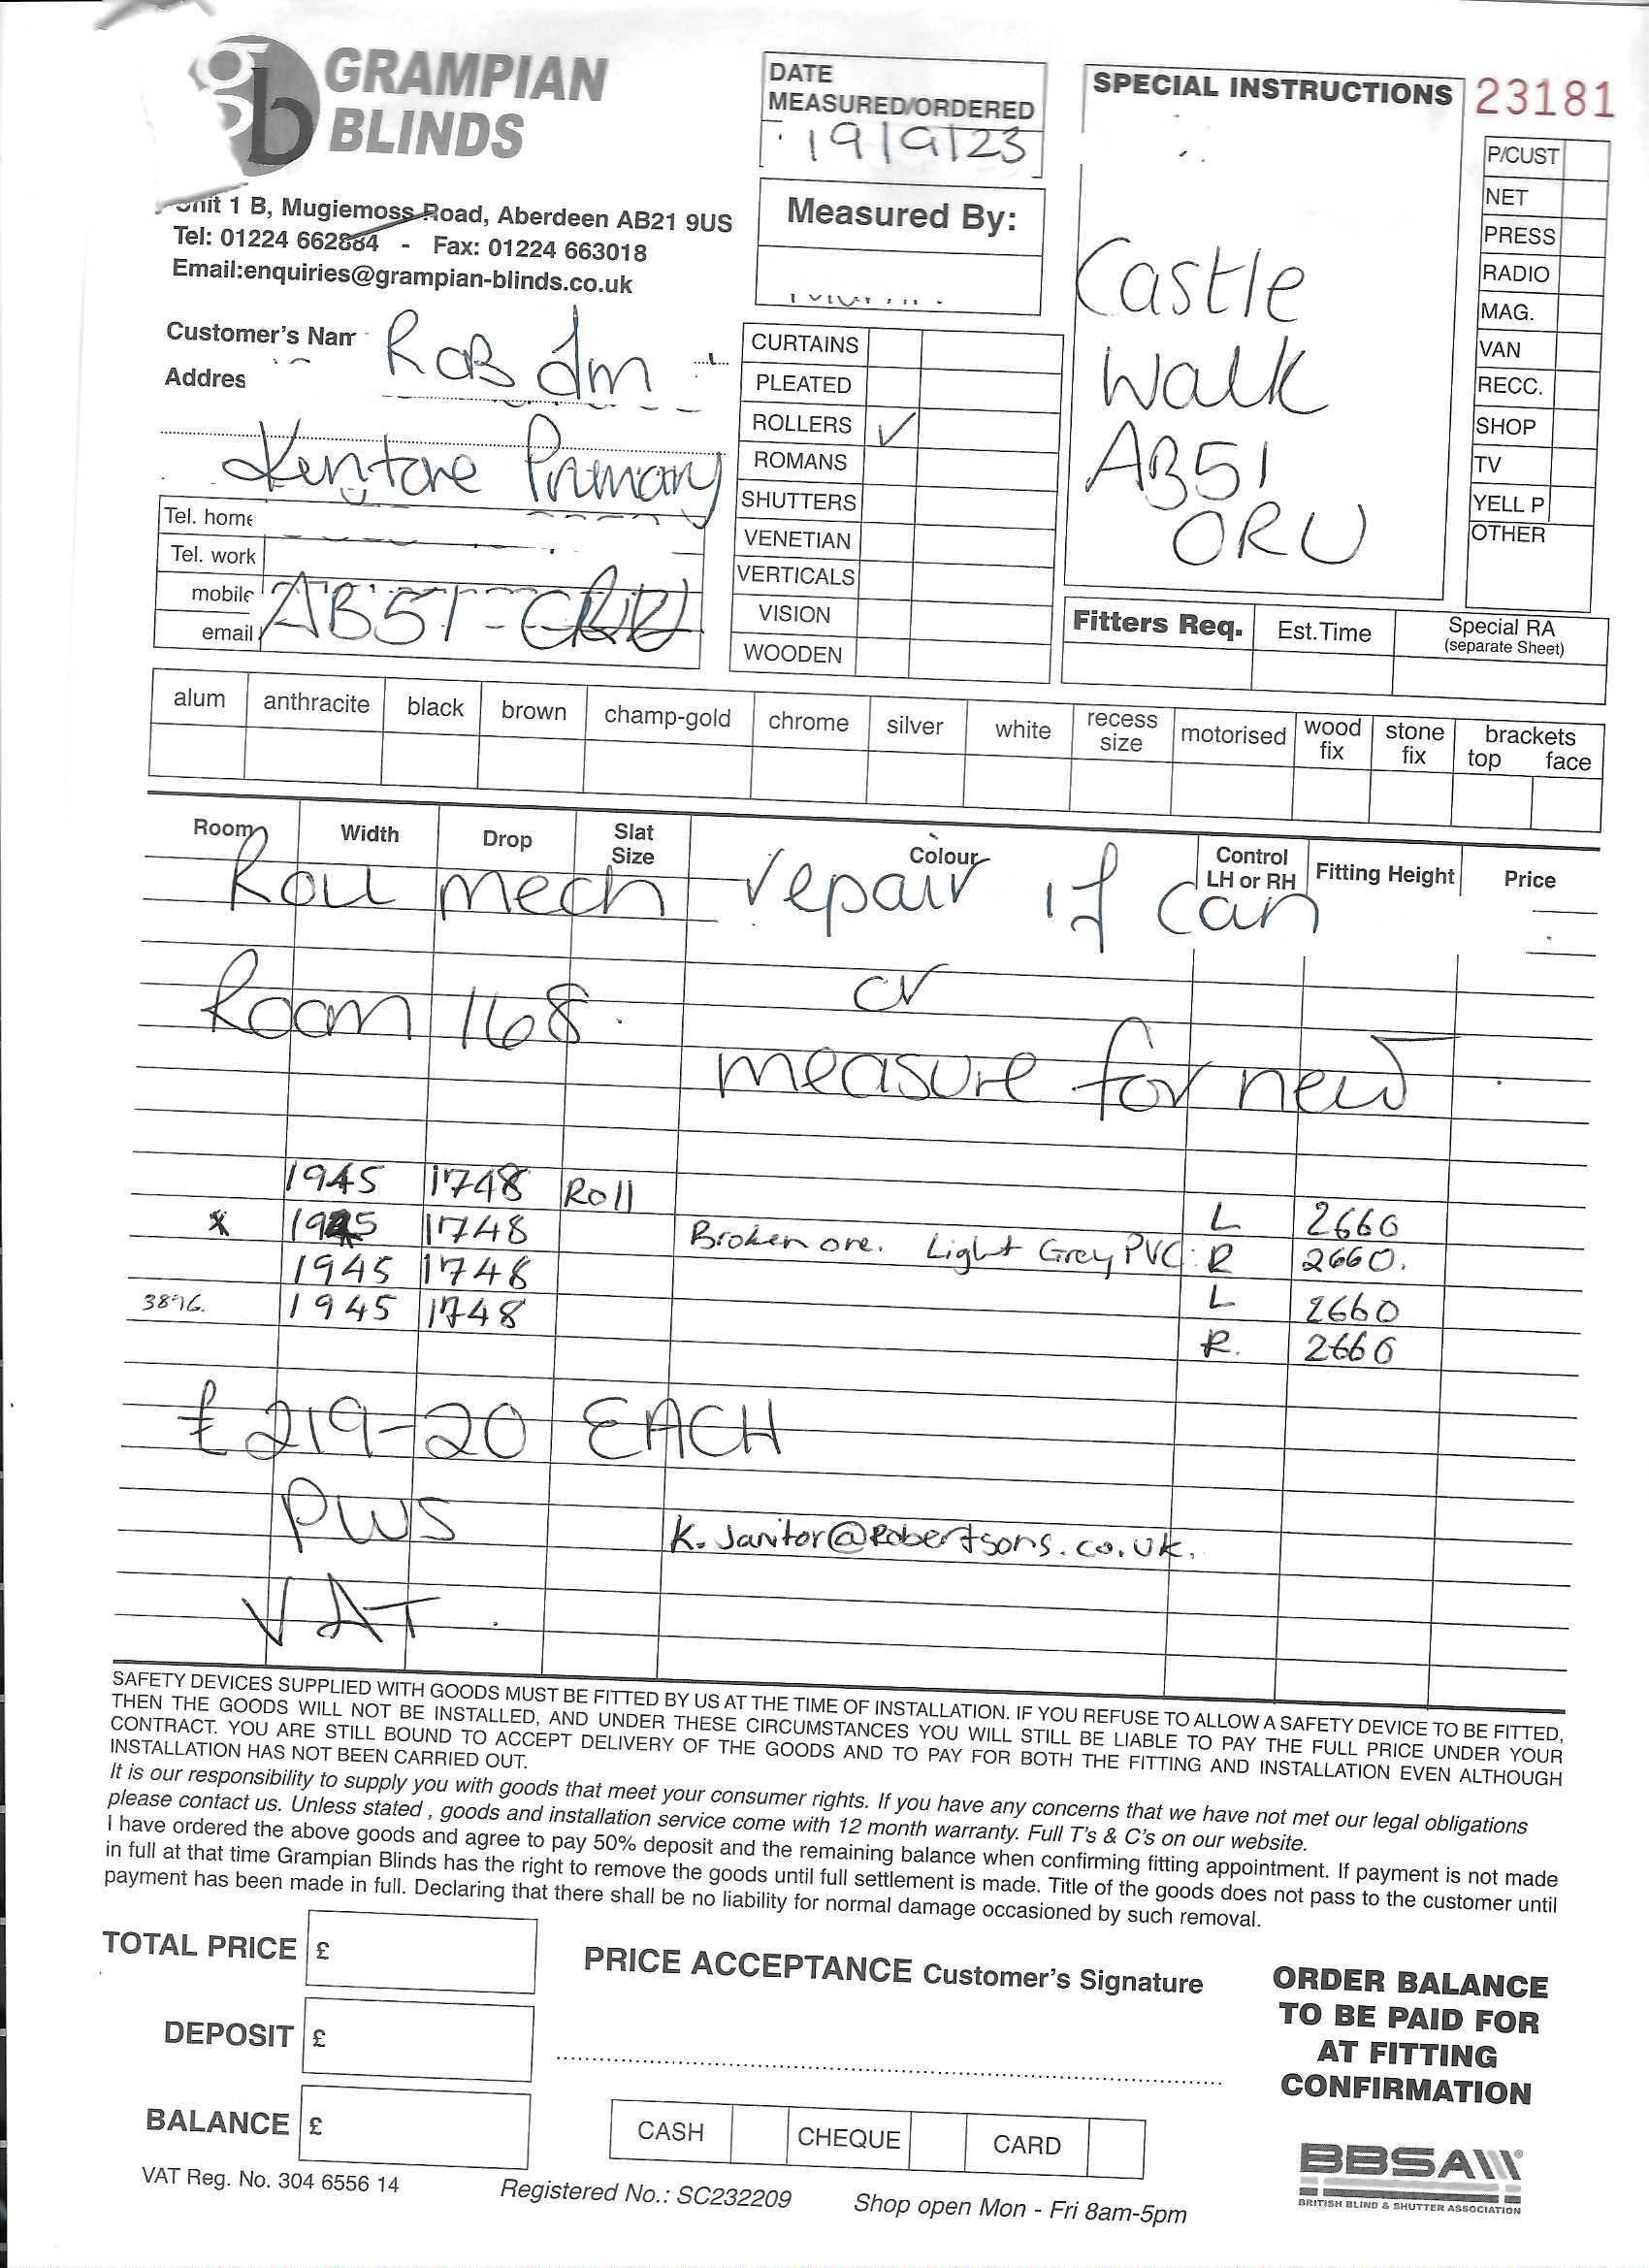 GRAMPIAN
BLINDS
Unit 1 B, Mugiemoss Road, Aberdeen AB21 9US
Tel: 01224 662884 - Fax: 01224 663018
Email:enquiries@grampian-blinds.co.uk
DATE
MEASURED/ORDERED
19/9/23
Measured By:
SPECIAL INSTRUCTIONS
23181
Castle
Walk
AB51
ORU
P/CUST
NET
PRESS
RADIO
MAG.
VAN
RECC.
SHOP
TV
YELL P
OTHER
Customer's Nam
Addres
Kintore Primary
Tel. home
Tel. work
mobile
email
AB51
CURTAINS
PLEATED
ROLLERS ✓
ROMANS
SHUTTERS
VENETIAN
VERTICALS
VISION
WOODEN
Fitters Req. Est.Time Special RA
(separate Sheet)
alum anthracite black brown champ-gold chrome silver white recess size motorised wood fix stone fix brackets top face
Room Width Drop Slat Size Colour Control LH or RH Fitting Height Price
Roll mech repair if can
or
Room 168.
measure for new
1945 1748 Roll L 2660
x 1945 1748 Broken one. Light Grey PVC: R 2660.
1945 1748 L 2660
3896. 1945 1748 R. 2660
£219-20 EACH
PWS
K.Janitor@Robertsons.co.uk.
VAT
SAFETY DEVICES SUPPLIED WITH GOODS MUST BE FITTED BY US AT THE TIME OF INSTALLATION. IF YOU REFUSE TO ALLOW A SAFETY DEVICE TO BE FITTED,
THEN THE GOODS WILL NOT BE INSTALLED, AND UNDER THESE CIRCUMSTANCES YOU WILL STILL BE LIABLE TO PAY THE FULL PRICE UNDER YOUR
CONTRACT. YOU ARE STILL BOUND TO ACCEPT DELIVERY OF THE GOODS AND TO PAY FOR BOTH THE FITTING AND INSTALLATION EVEN ALTHOUGH
INSTALLATION HAS NOT BEEN CARRIED OUT.
It is our responsibility to supply you with goods that meet your consumer rights. If you have any concerns that we have not met our legal obligations
please contact us. Unless stated , goods and installation service come with 12 month warranty. Full T's & C's on our website.
I have ordered the above goods and agree to pay 50% deposit and the remaining balance when confirming fitting appointment. If payment is not made
in full at that time Grampian Blinds has the right to remove the goods until full settlement is made. Title of the goods does not pass to the customer until
payment has been made in full. Declaring that there shall be no liability for normal damage occasioned by such removal.
TOTAL PRICE £
DEPOSIT £
BALANCE £
PRICE ACCEPTANCE Customer's Signature
CASH CHEQUE CARD
ORDER BALANCE
TO BE PAID FOR
AT FITTING
CONFIRMATION
VAT Reg. No. 304 6556 14
Registered No.: SC232209
Shop open Mon - Fri 8am-5pm
BBSA
BRITISH BLIND & SHUTTER ASSOCIATION